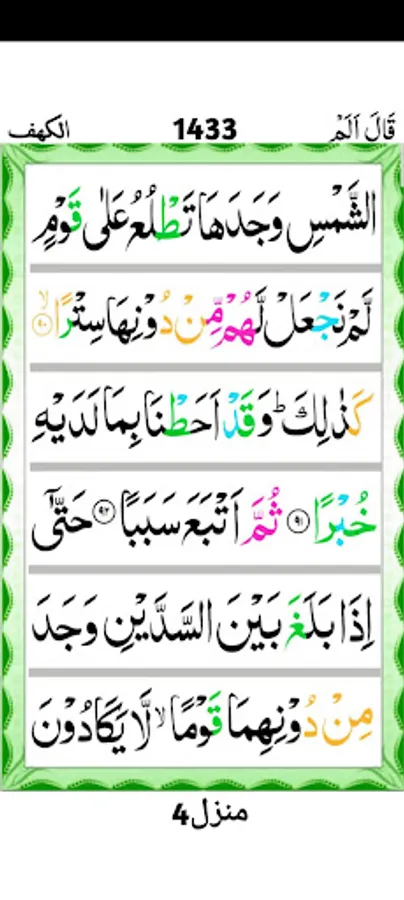 قَالَ اَلَمْ 1433 الكهف
الشَّمْسِ وَجَدَهَا تَطْلُعُ عَلٰى قَوْمٍ
لَّمْ نَجْعَلْ لَّهُمْ مِّنْ دُوْنِهَا سِتْرًاۙ‏ ﴿۹۰﴾
كَذٰلِكَؕ وَقَدْ اَحَطْنَا بِمَا لَدَيْهِ
خُبْرًا ﴿۹۱﴾ ثُمَّ اَتْبَعَ سَبَبًا ﴿۹۲﴾ حَتّٰۤى
اِذَا بَلَغَ بَيْنَ السَّدَّيْنِ وَجَدَ
مِنْ دُوْنِهِمَا قَوْمًاۙ لَّا يَكَادُوْنَ
منزل4